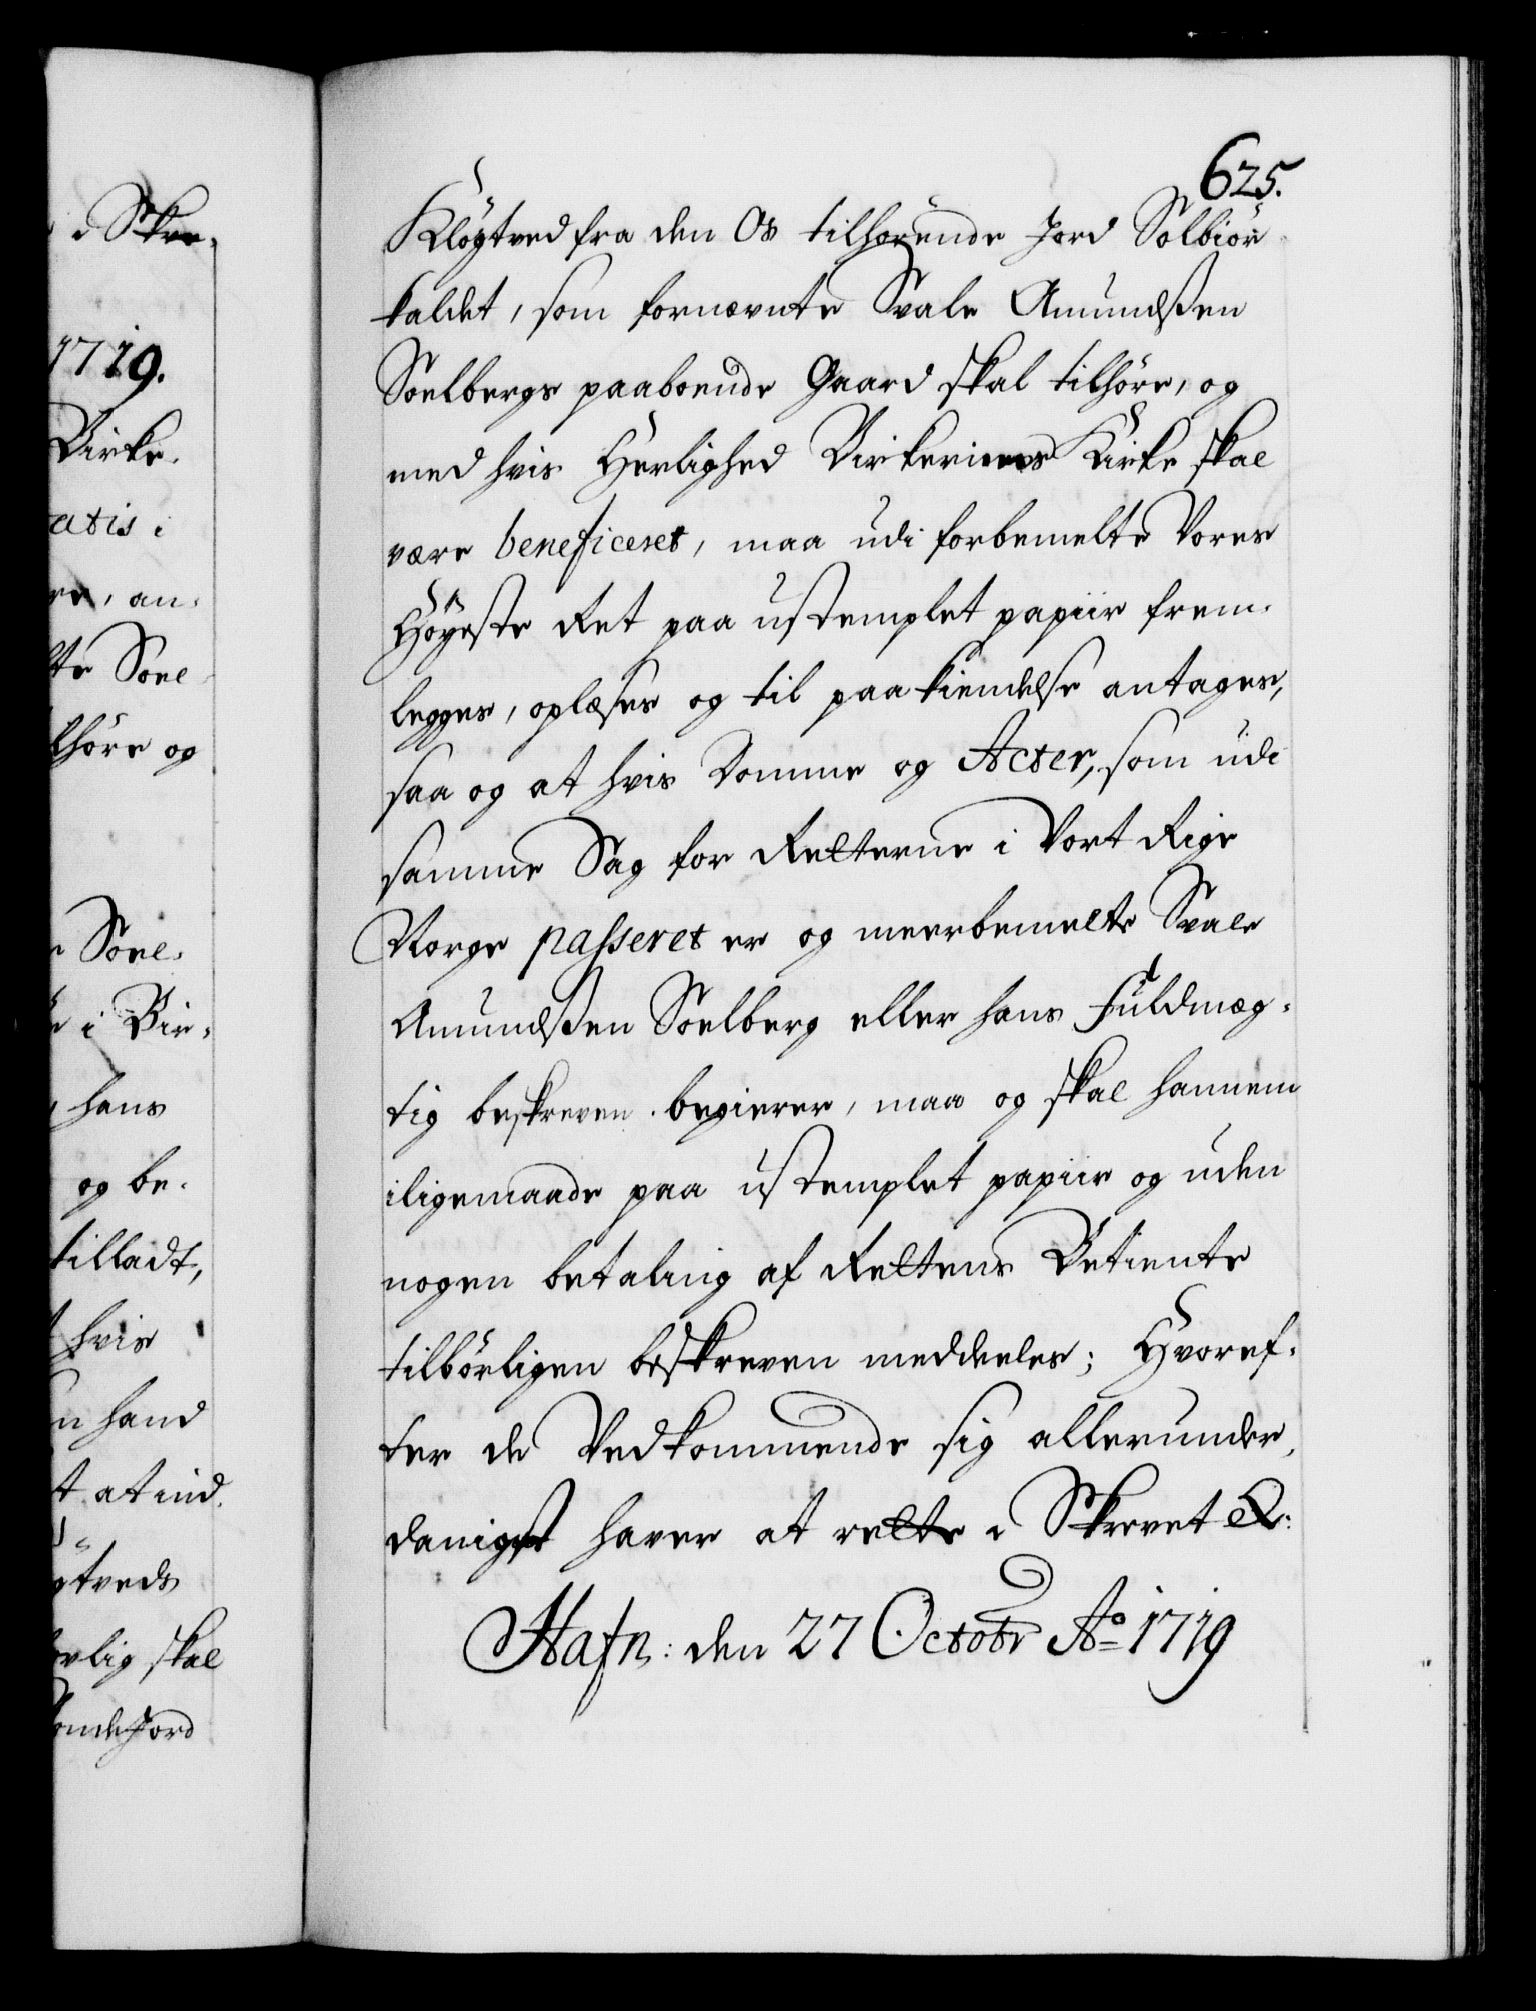 625.
Kløgtved fra den Os tilhørende Jord Solbiør
kaldet, som fornævnte Svale Amundßen
Soelbergs paaboende Gaard skal tilhøre, og
med hvis Herlighed Birkeriens Kirke skal
være beneficeret, maa udi forbemelte Vores
Høyeste Ret paa ustemplet papiir frem-
legges, oplæses og til paakiendelse antages,
saa og at hvis Domme og Acter, som udi
samme Sag for Retterne i Vort Rige
Norge passeret er og meerbemelte Svale
Amundßen Soelberg eller hans Fuldmæg-
tig beskreven begierer, maa og skal hannem
iligemaade paa ustemplet papiir og uden
nogen betaling af Rettens Betiente
tilbørligen beskreven meddeeles; Hvoref-
ter de Vedkommende sig allerunder-
danigst haver at rette. Skrevet &:
Hafn: den 27 Octobr Ao 1719
Skre-
1719.
Birke-
atis
an-
te Soel
lhøre og
Soel-
i Bir-
hans
og be-
tilladt,
hvis
hand
at ind-
gtveds
skal
Jord